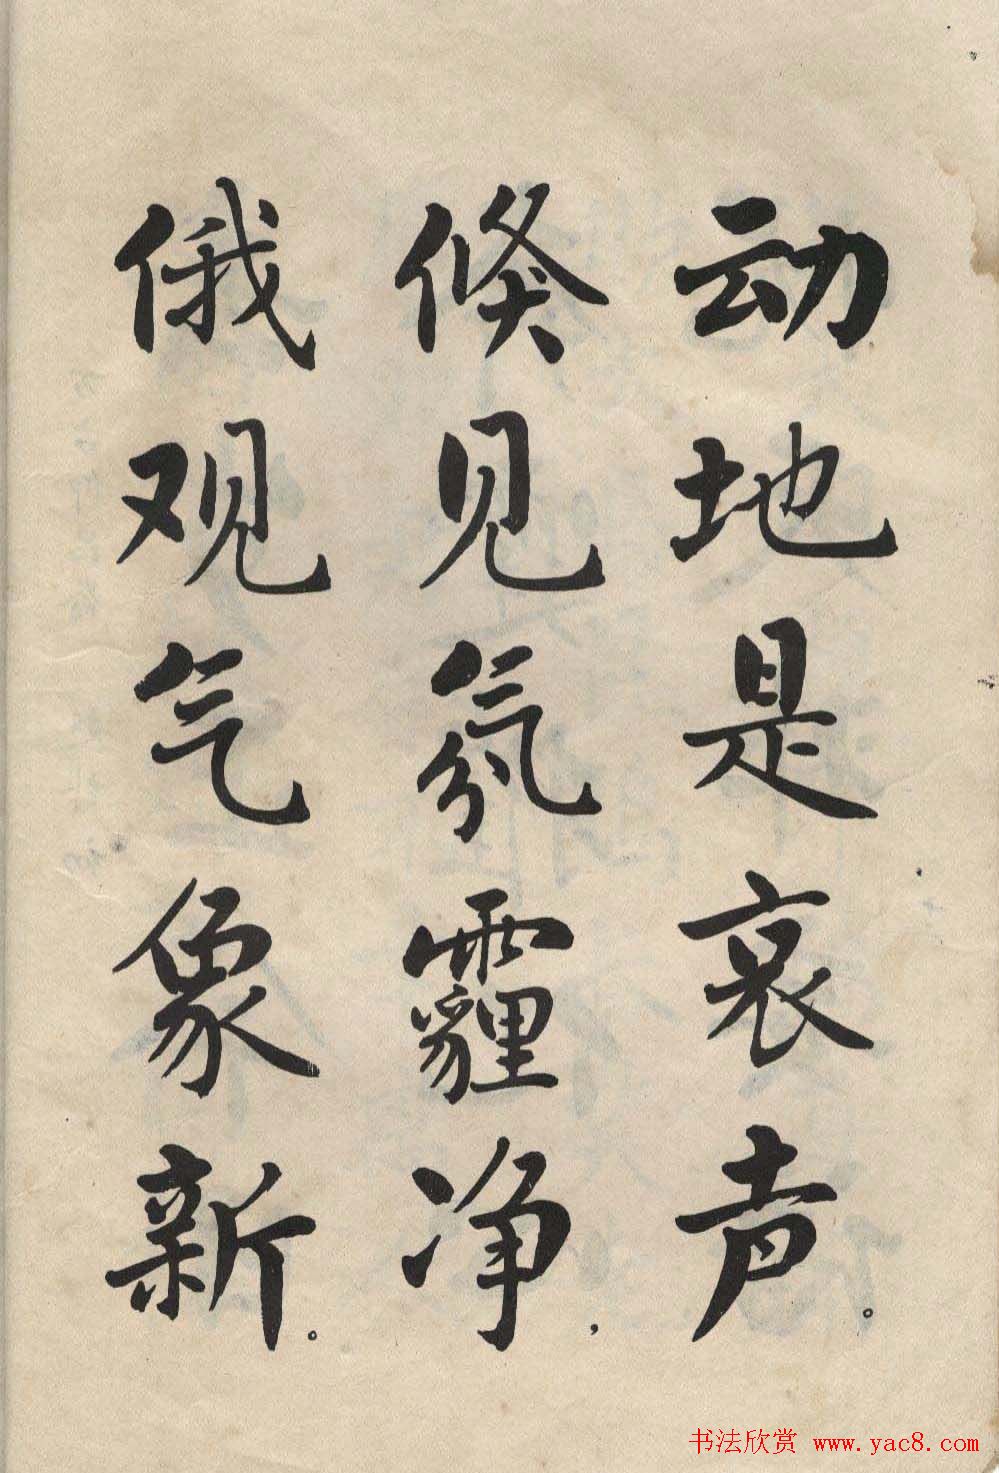 动地是哀声。
倏见氛霾净，
俄观气象新。
书法欣赏 www.yac8.com